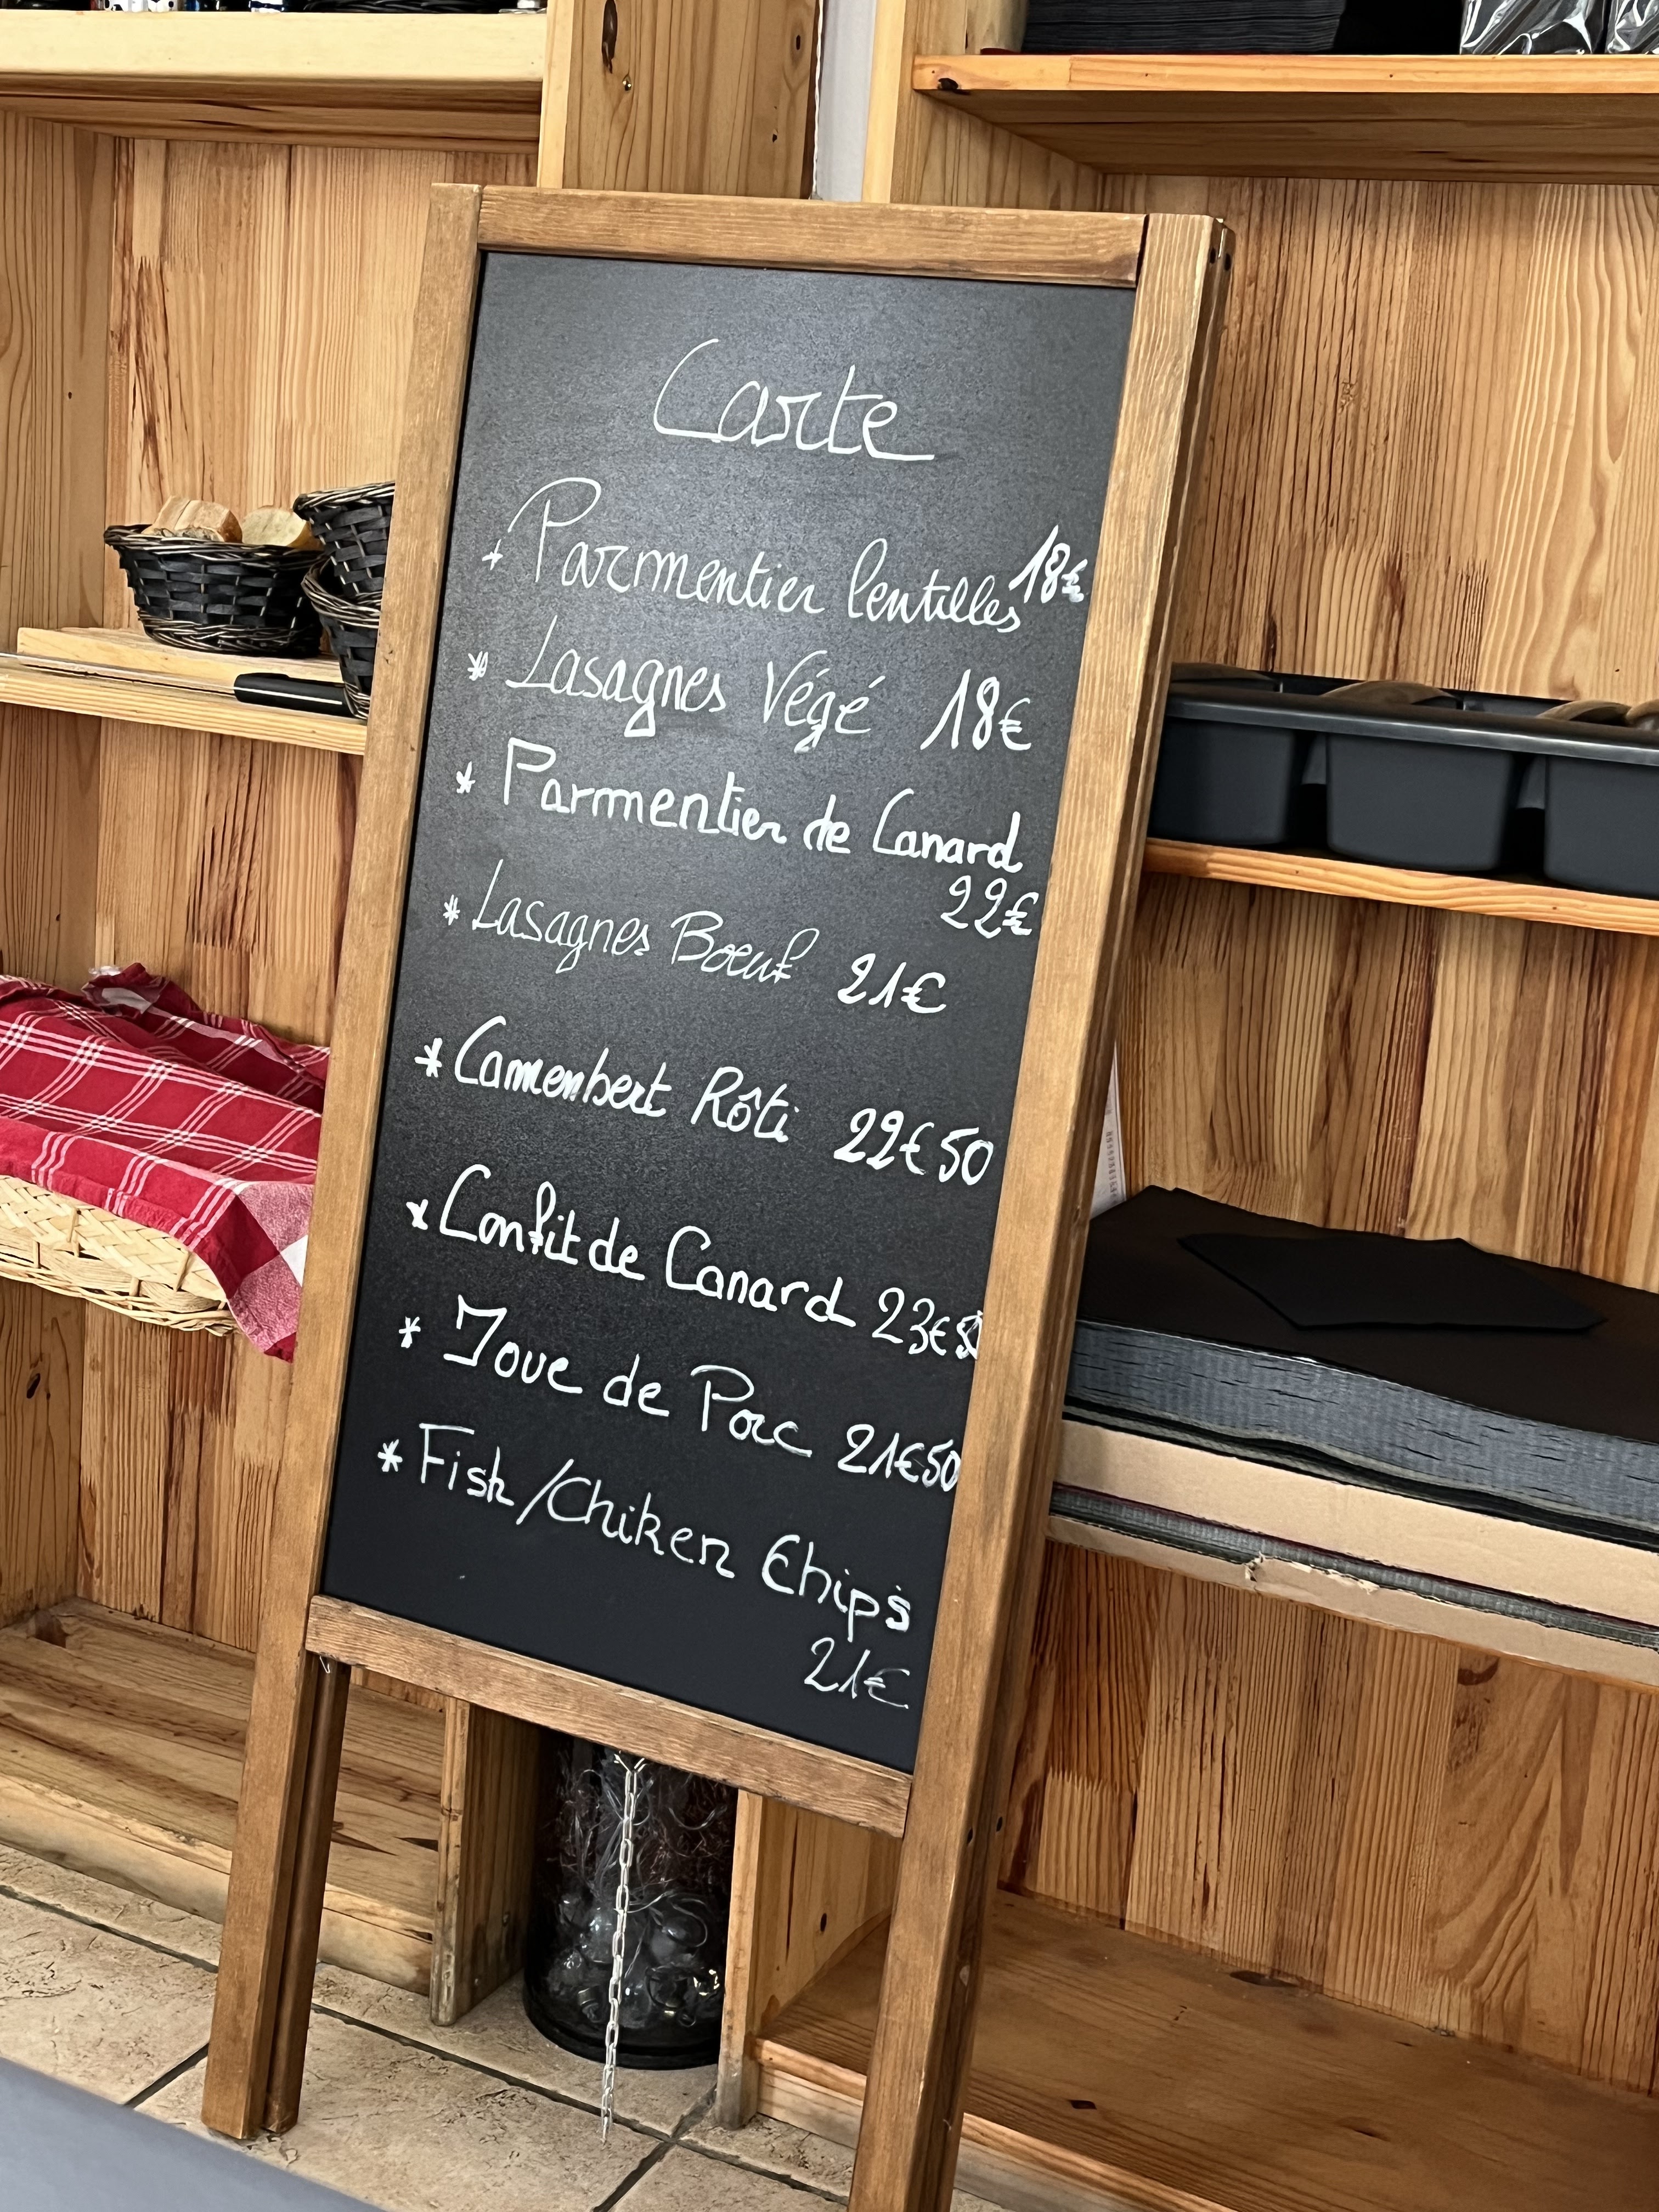 Carte
* Parmentier lentilles 18€
* Lasagnes Végé 18€
* Parmentier de Canard
22€
* Lasagnes Boeuf 21€
* Camembert Rôti 22€50
* Confit de Canard 23€50
* Joue de Porc 21€50
* Fish/Chiken Chip's
21€